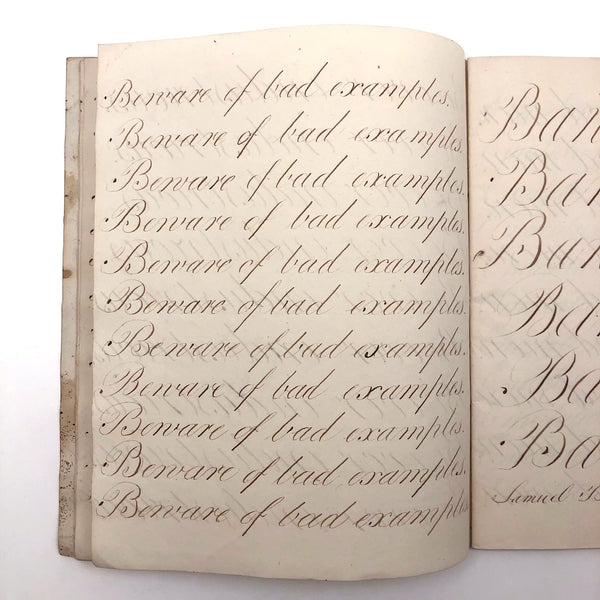 Beware of bad examples.
Beware of bad examples.
Beware of bad examples.
Beware of bad examples.
Beware of bad examples.
Beware of bad examples.
Beware of bad examples.
Beware of bad examples.
Beware of bad examples.
Beware of bad examples.
Beware of bad examples
Samuel